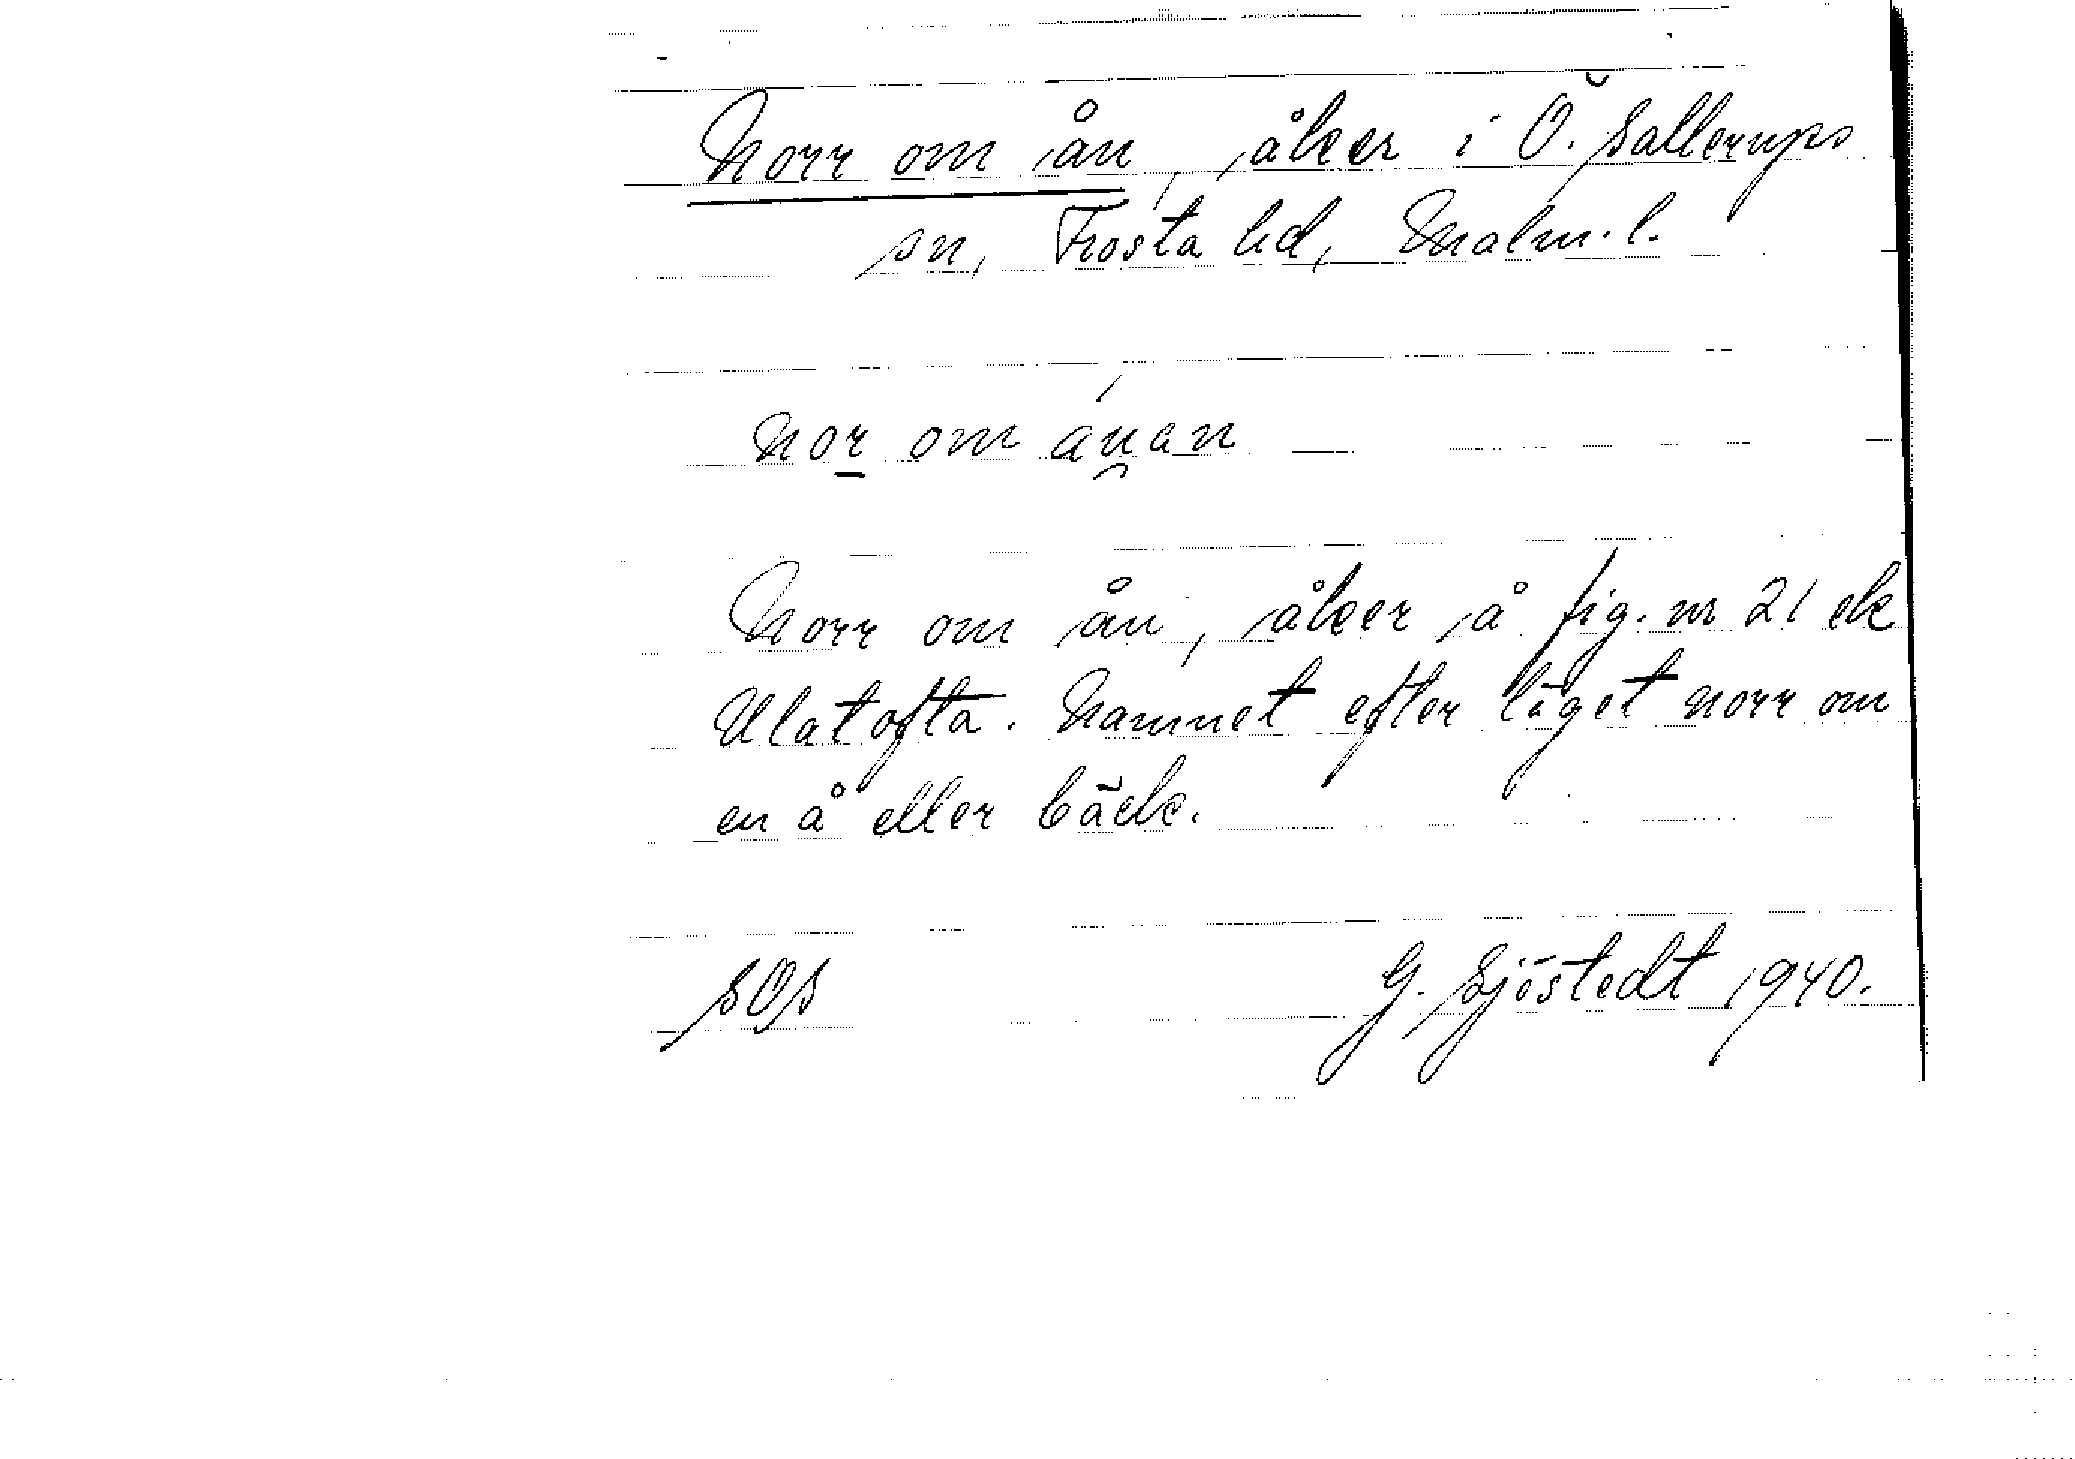 Norr om ån, åker i Ö. Sallerups
sn, Frosta hd, Malm. l.
nor om áu̯an
Norr om ån, åker å fig. nr 21 ek
Ulatofta. Namnet efter läget norr om
en å eller bäck.
SOS G. Sjöstedt 1940.